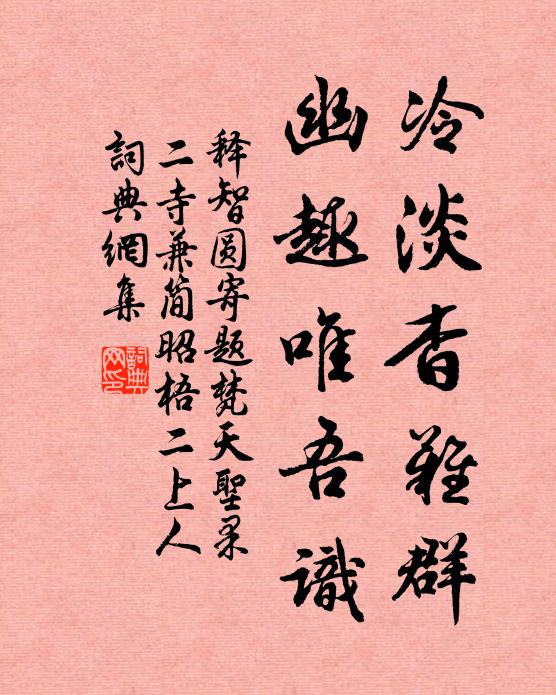 冷淡杳難群
幽趣唯吾識
释智圆寄题梵天聖果
二寺兼简昭梧二上人
詞典網集
詞典网印